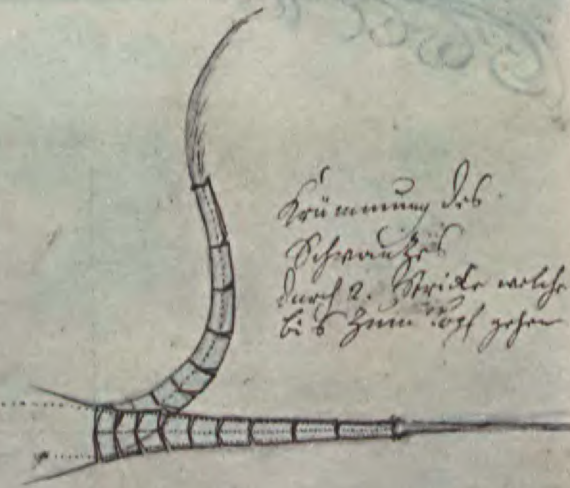 Krümmung des
Schwantzes
durch 2. Stricke welche
bis zum Kopf gehen